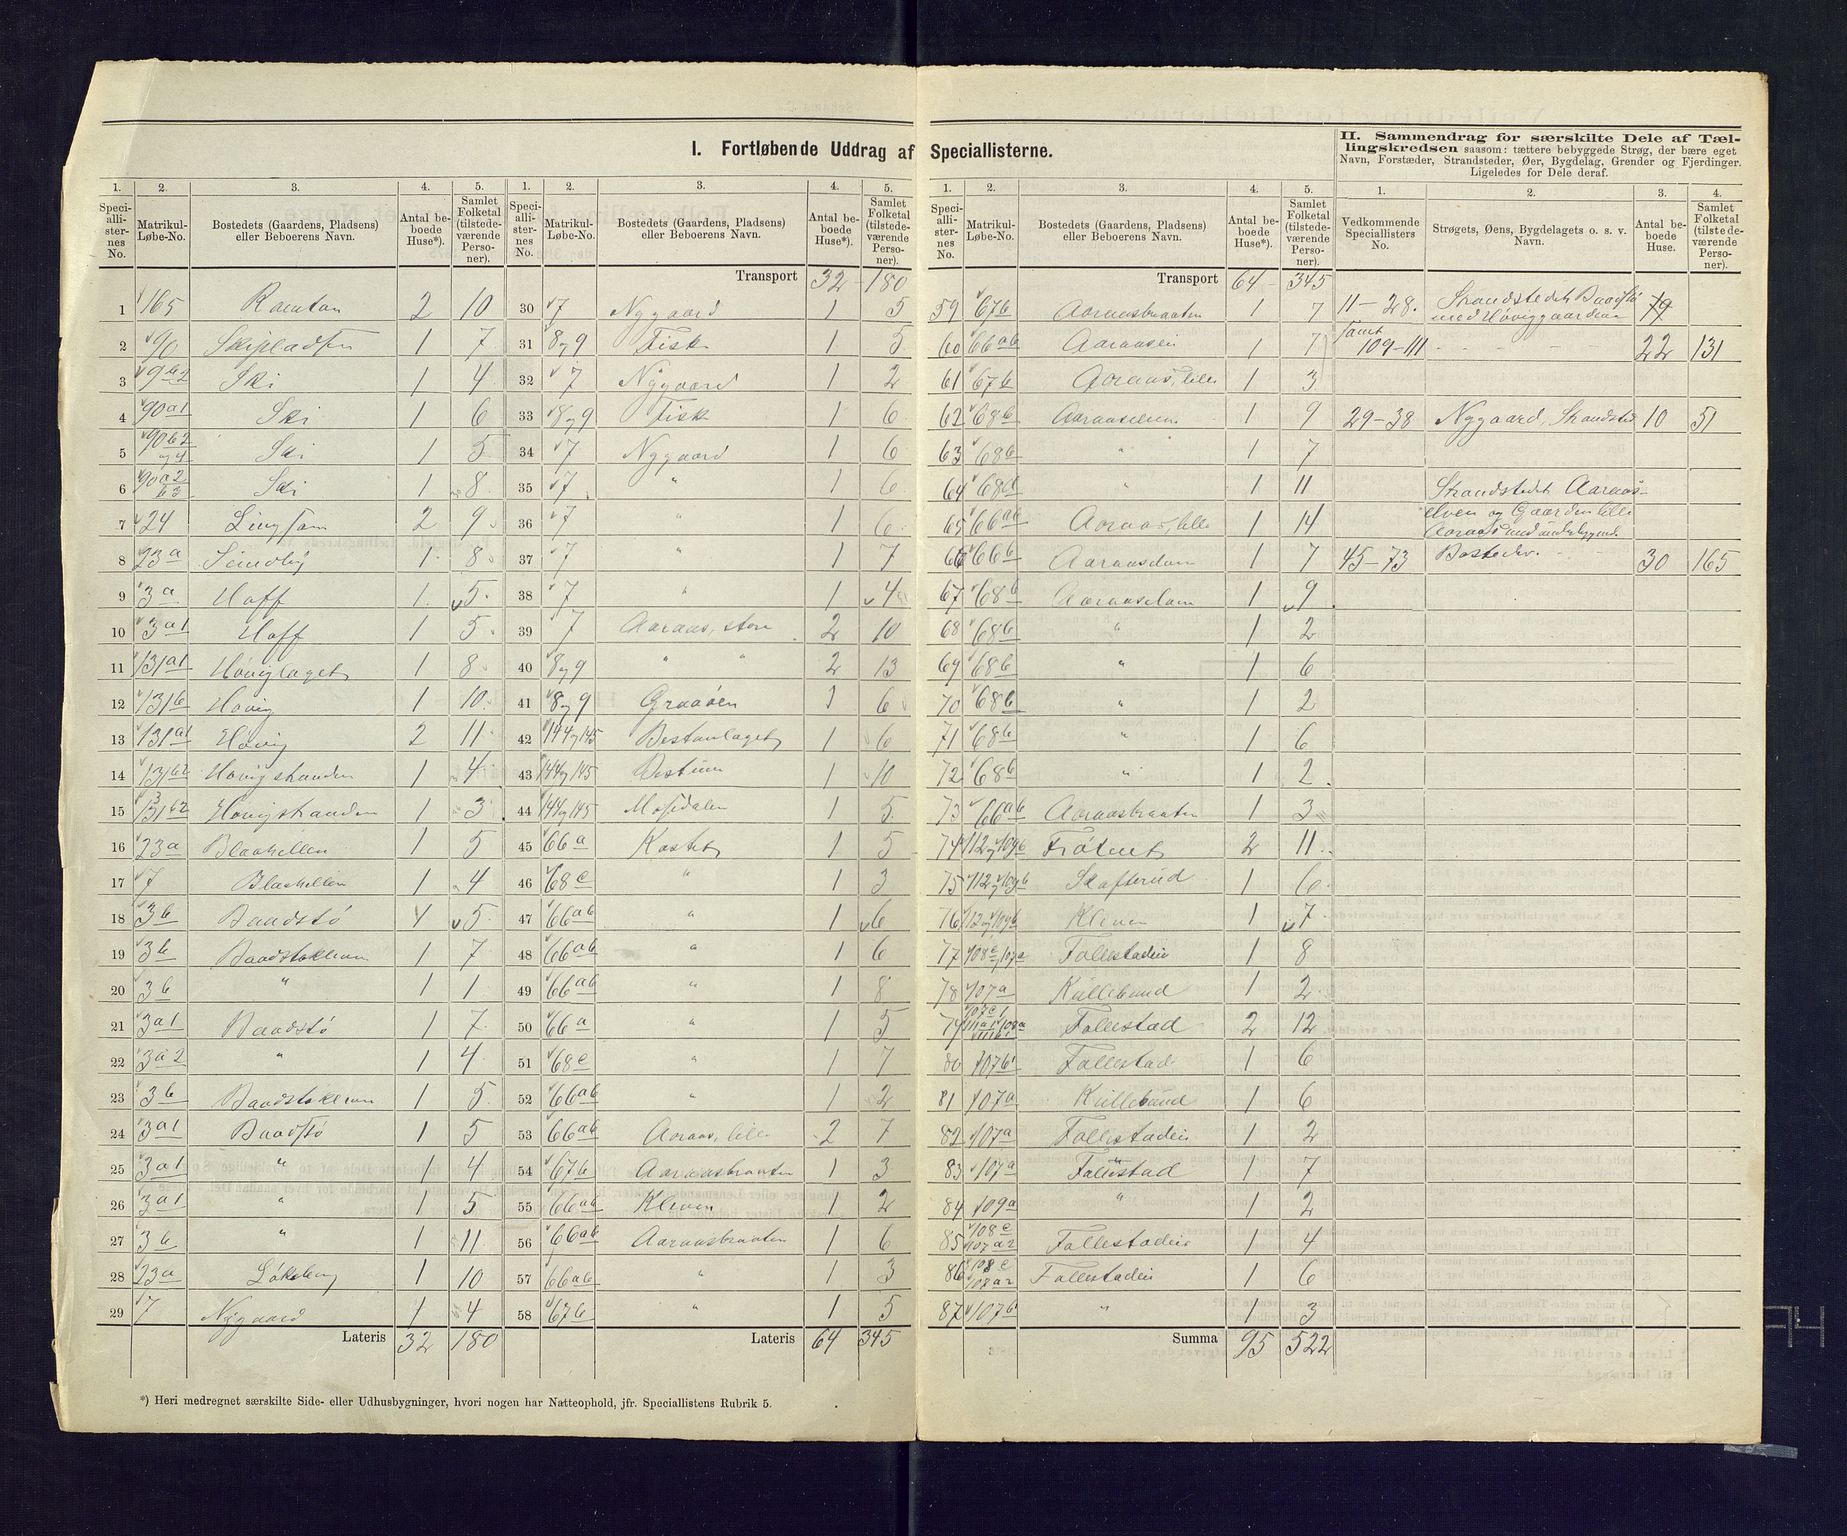 I. Fortløbende Uddrag af Speciallisterne.
II. Sammendrag for særskilte Dele af Tæl-
lingskredsen saasom: tættere bebyggede Strøg, der bære eget
Navn, Forstæder, Strandsteder, Øer, Bygdelag, Grender og Fjerdinger.
Ligeledes for Dele deraf.
1. 2. 3. 4. 5. 1. 2. 3. 4. 5. 1. 2. 3. 4. 5. 1. 2. 3. 4.
Speciallisternes No. Matrikul-Løbe-No. Bostedets (Gaardens, Pladsens) eller Beboerens Navn. Antal beboede Huse*). Samlet Folketal (tilstedeværende Personer).
Vedkommende Speciallisters No. Strøgets, Øens, Bygdelagets o. s. v. Navn. Antal beboede Huse. Samlet Folketal (tilstedeværende Personer).
1 165 2 10
2 90 Skipladsen 1 7
3 Ski 1 4
4 90a1 Ski 1 6
5 90b2 og Ski 1 5
6 90a2 b3 Ski 1 8
7 24 2 9
8 23a 1 8
9 3a Hoff 1 5
10 3a1 Hoff 1 5
11 131a1 Høviglaget 1 8
12 131b Høvig 1 10
13 131a1 Høvig 2 11
14 131b2 Høvigstranden 1 4
15 131b2 Høvigstranden 1 3
16 23a Blaakellen 1 5
17 7 Blaakellen 1 4
18 3b Baadstø 1 5
19 3b 1 7
20 3b " 1 1
21 3a1 Baadstø 1 7
22 3a2 " 1 4
23 3b 1 5
24 3a1 Baadstø 1 5
25 3a1 " 1 4
26 3a1 " 1 5
27 3b " 1 11
28 23a Løkeberg 1 10
29 7 Nygaard 1 4
Lateris 32 180
Transport 32 180
30 7 Nygaard 1 5
31 8og9 Fisk 1 5
32 7 Nygaard 1 2
33 8og9 Fisk 1 6
34 7 Nygaard 1 6
35 7 " 1 6
36 7 " 1 6
37 7 " 1 7
38 7 " 1 4
39 7 Aaraas, store 2 10
40 8og9 " " 2 13
41 8og9 Graaøen 1 6
42 144og145 Bestumlaget 1 6
43 144og145 Bestum 1 10
44 144og145 Mosedalen 1 5
45 66a Kastet 1 5
46 68c " 1 3
47 66ab " 1 6
48 66ab " 1 6
49 66ab " 1 8
50 66a " 1 5
51 68c " 1 7
52 66ab " 1 2
53 66ab Aaraas, lille 2 7
54 67b Aaraasbraaten 1 3
55 66ab Kleven 1 2
56 66ab Aaraasbraaten 1 6
57 66ab " 1 3
58 67b " 1 5
Lateris 64 345
Transport 64 345
59 67b Aaraasbraaten 1 7
60 66ab Aaraasen 1 7
61 67b Aaraas, lille 1 3
62 68b Aaraaselven 1 9
63 68b " 1 7
64 68a " 1 11
65 66ab Aaraas, lille 1 14
66 66b 1 7
67 68b 1 9
68 68b " 1 2
69 68b " 1 6
70 68c " 1 2
71 68b " 1 6
72 68b " 1 2
73 66ab Aaraasbraaten 1 3
74 112og109b Frøtvet 2 11
75 112og109b Skafterud 1 6
76 112og109b Kleven 1 7
77 108c, 107a Follestadeie 1 8
78 107a Kullebund 1 2
79 107c1 111a1 108a 111b1 Follestad 2 12
80 107b1 Follestad 1 6
81 107a Kullebund 1 6
82 107a Follestadeie 1 2
83 107a Follestad 1 7
84 109a " 1 2
85 108c 107a2 Follestadeie 1 4
86 108c 108a2 Follestadeie 1 6
87 107b1 " 1 3
Summa 95 522
11-28. Strandstedet Baadstø
med Høviggaardene 19
samt
109-111 - - - - 22 131
29-38 Nygaard, Strandsted 10 51
Strandstedet Aaraas-
elven og Gaarden lille
Aaraas med underliggende
45-73 Bosteder. - - 30 165
*) Heri medregnet særskilte Side- eller Udhusbygninger, hvori nogen har Natteophold, jfr. Speciallistens Rubrik 5.